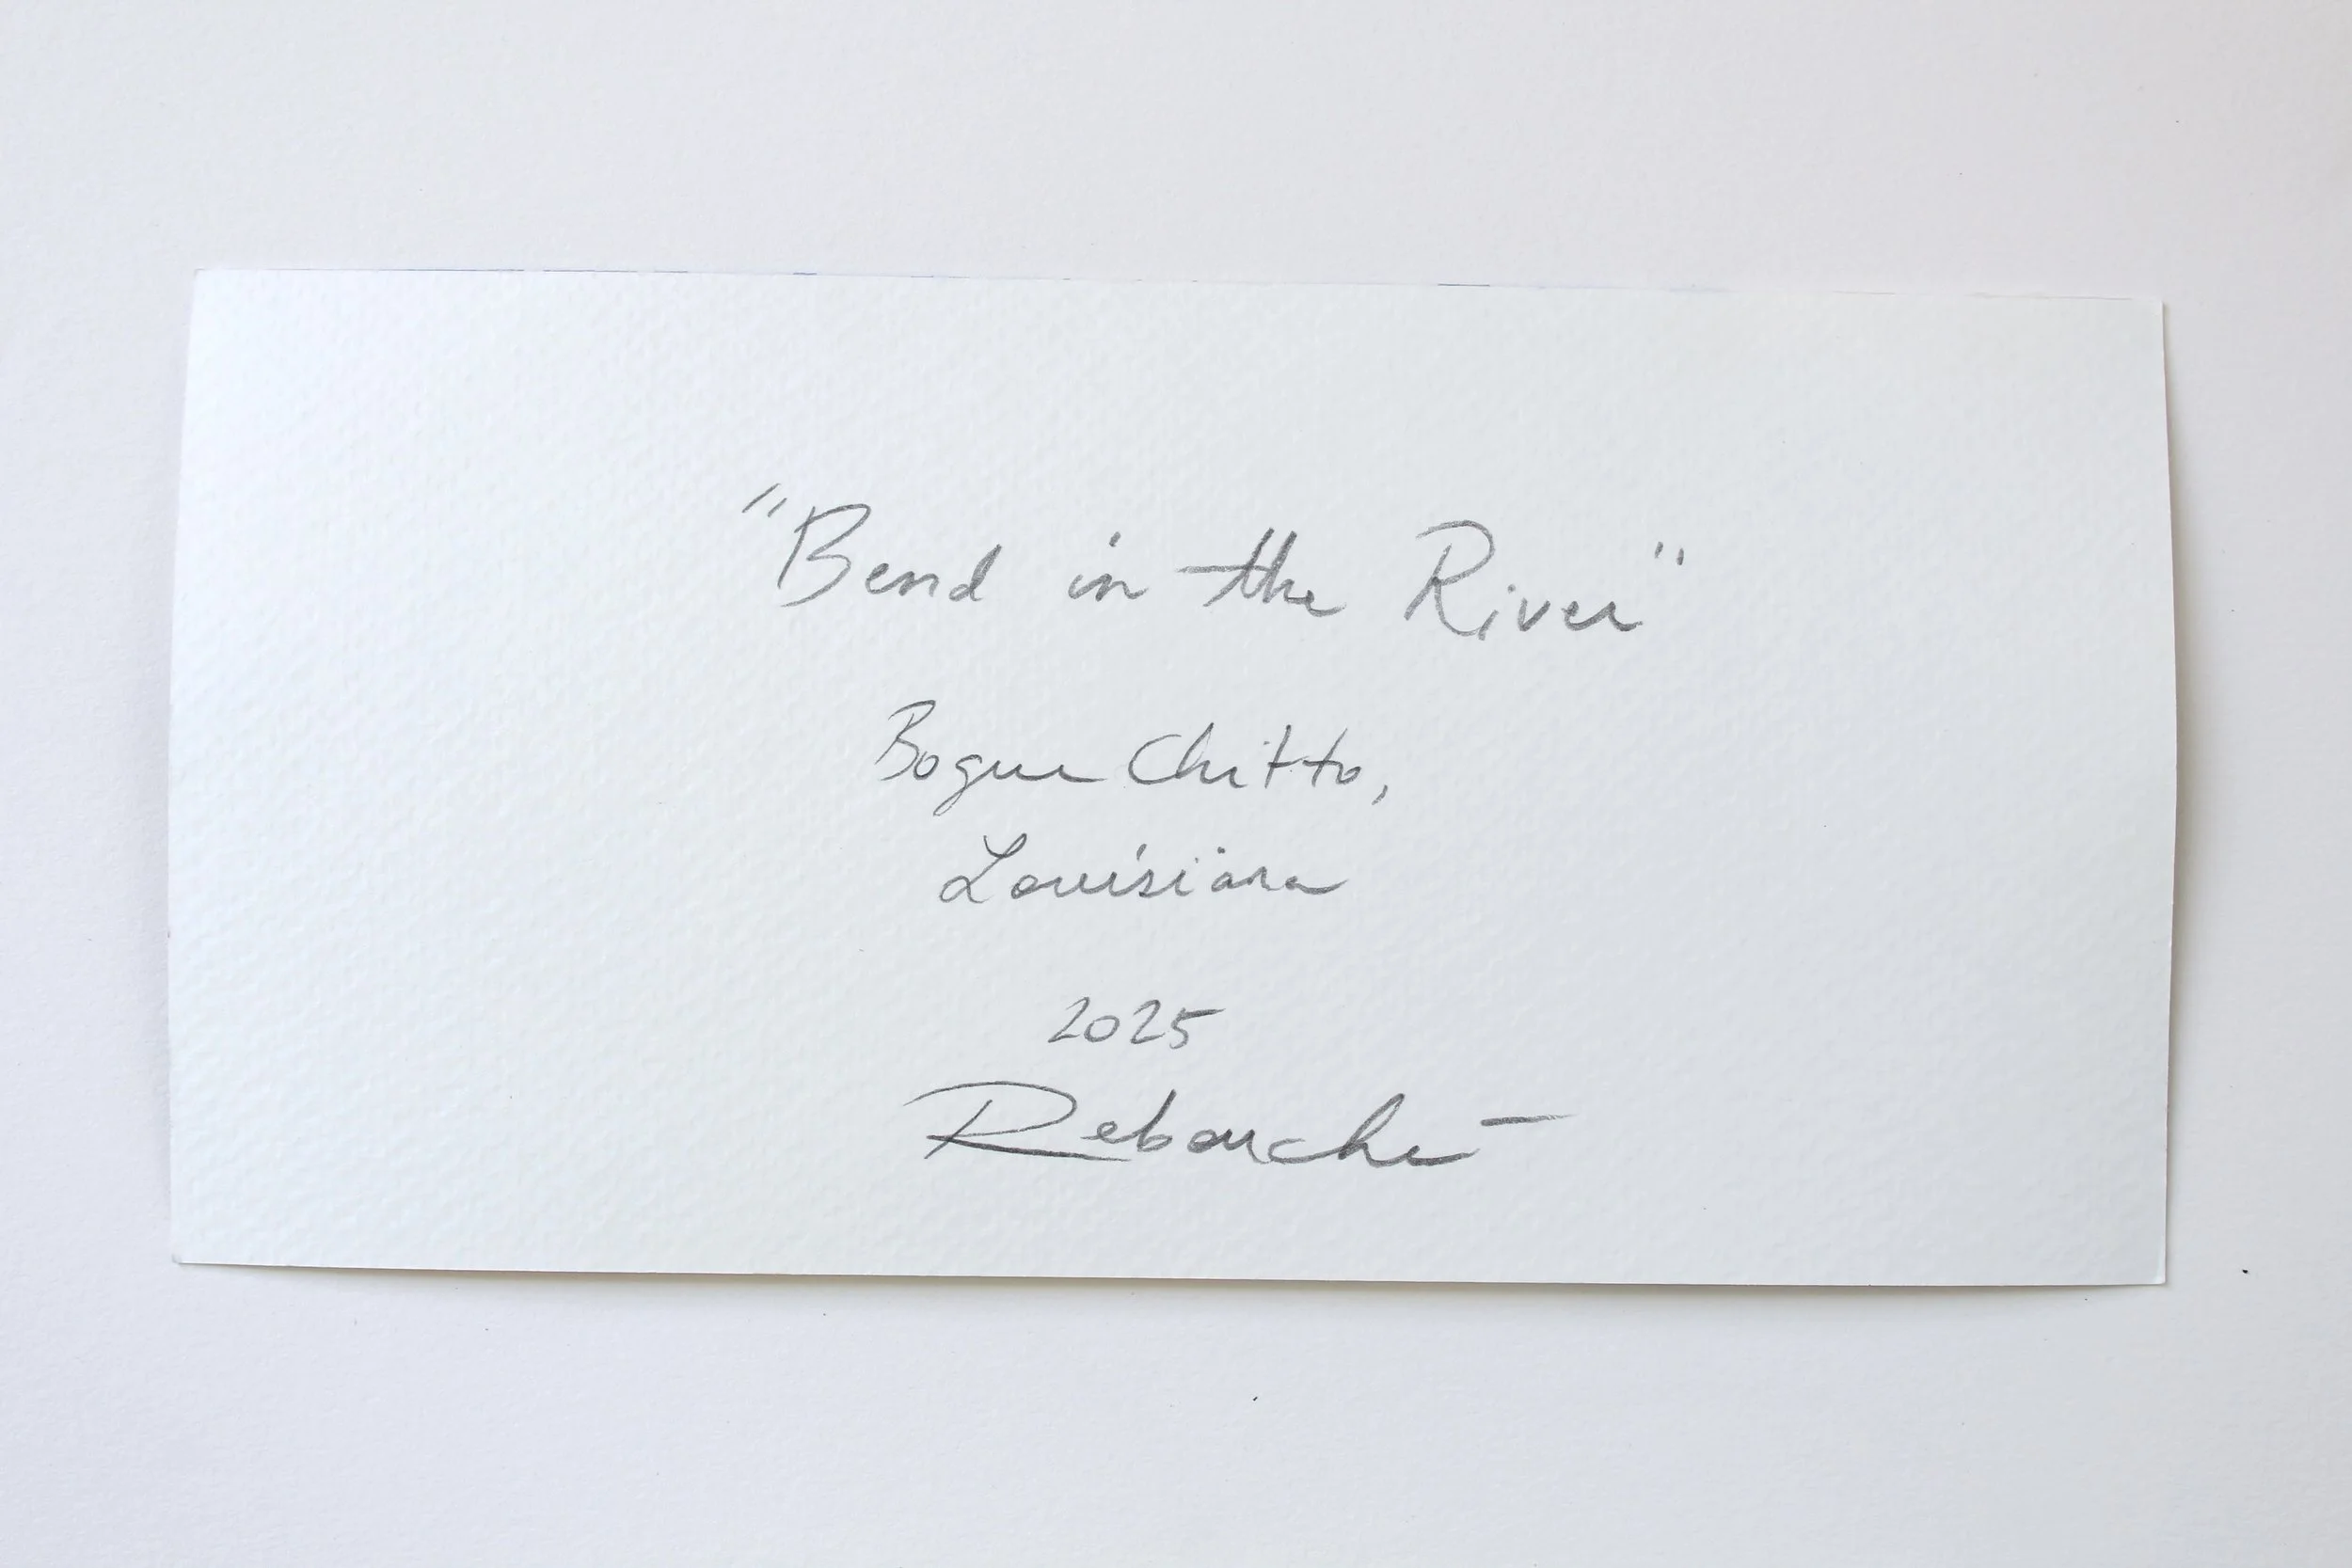 "Bend in the River"
Bogue Chitto,
Louisiana
2025
Rebouché